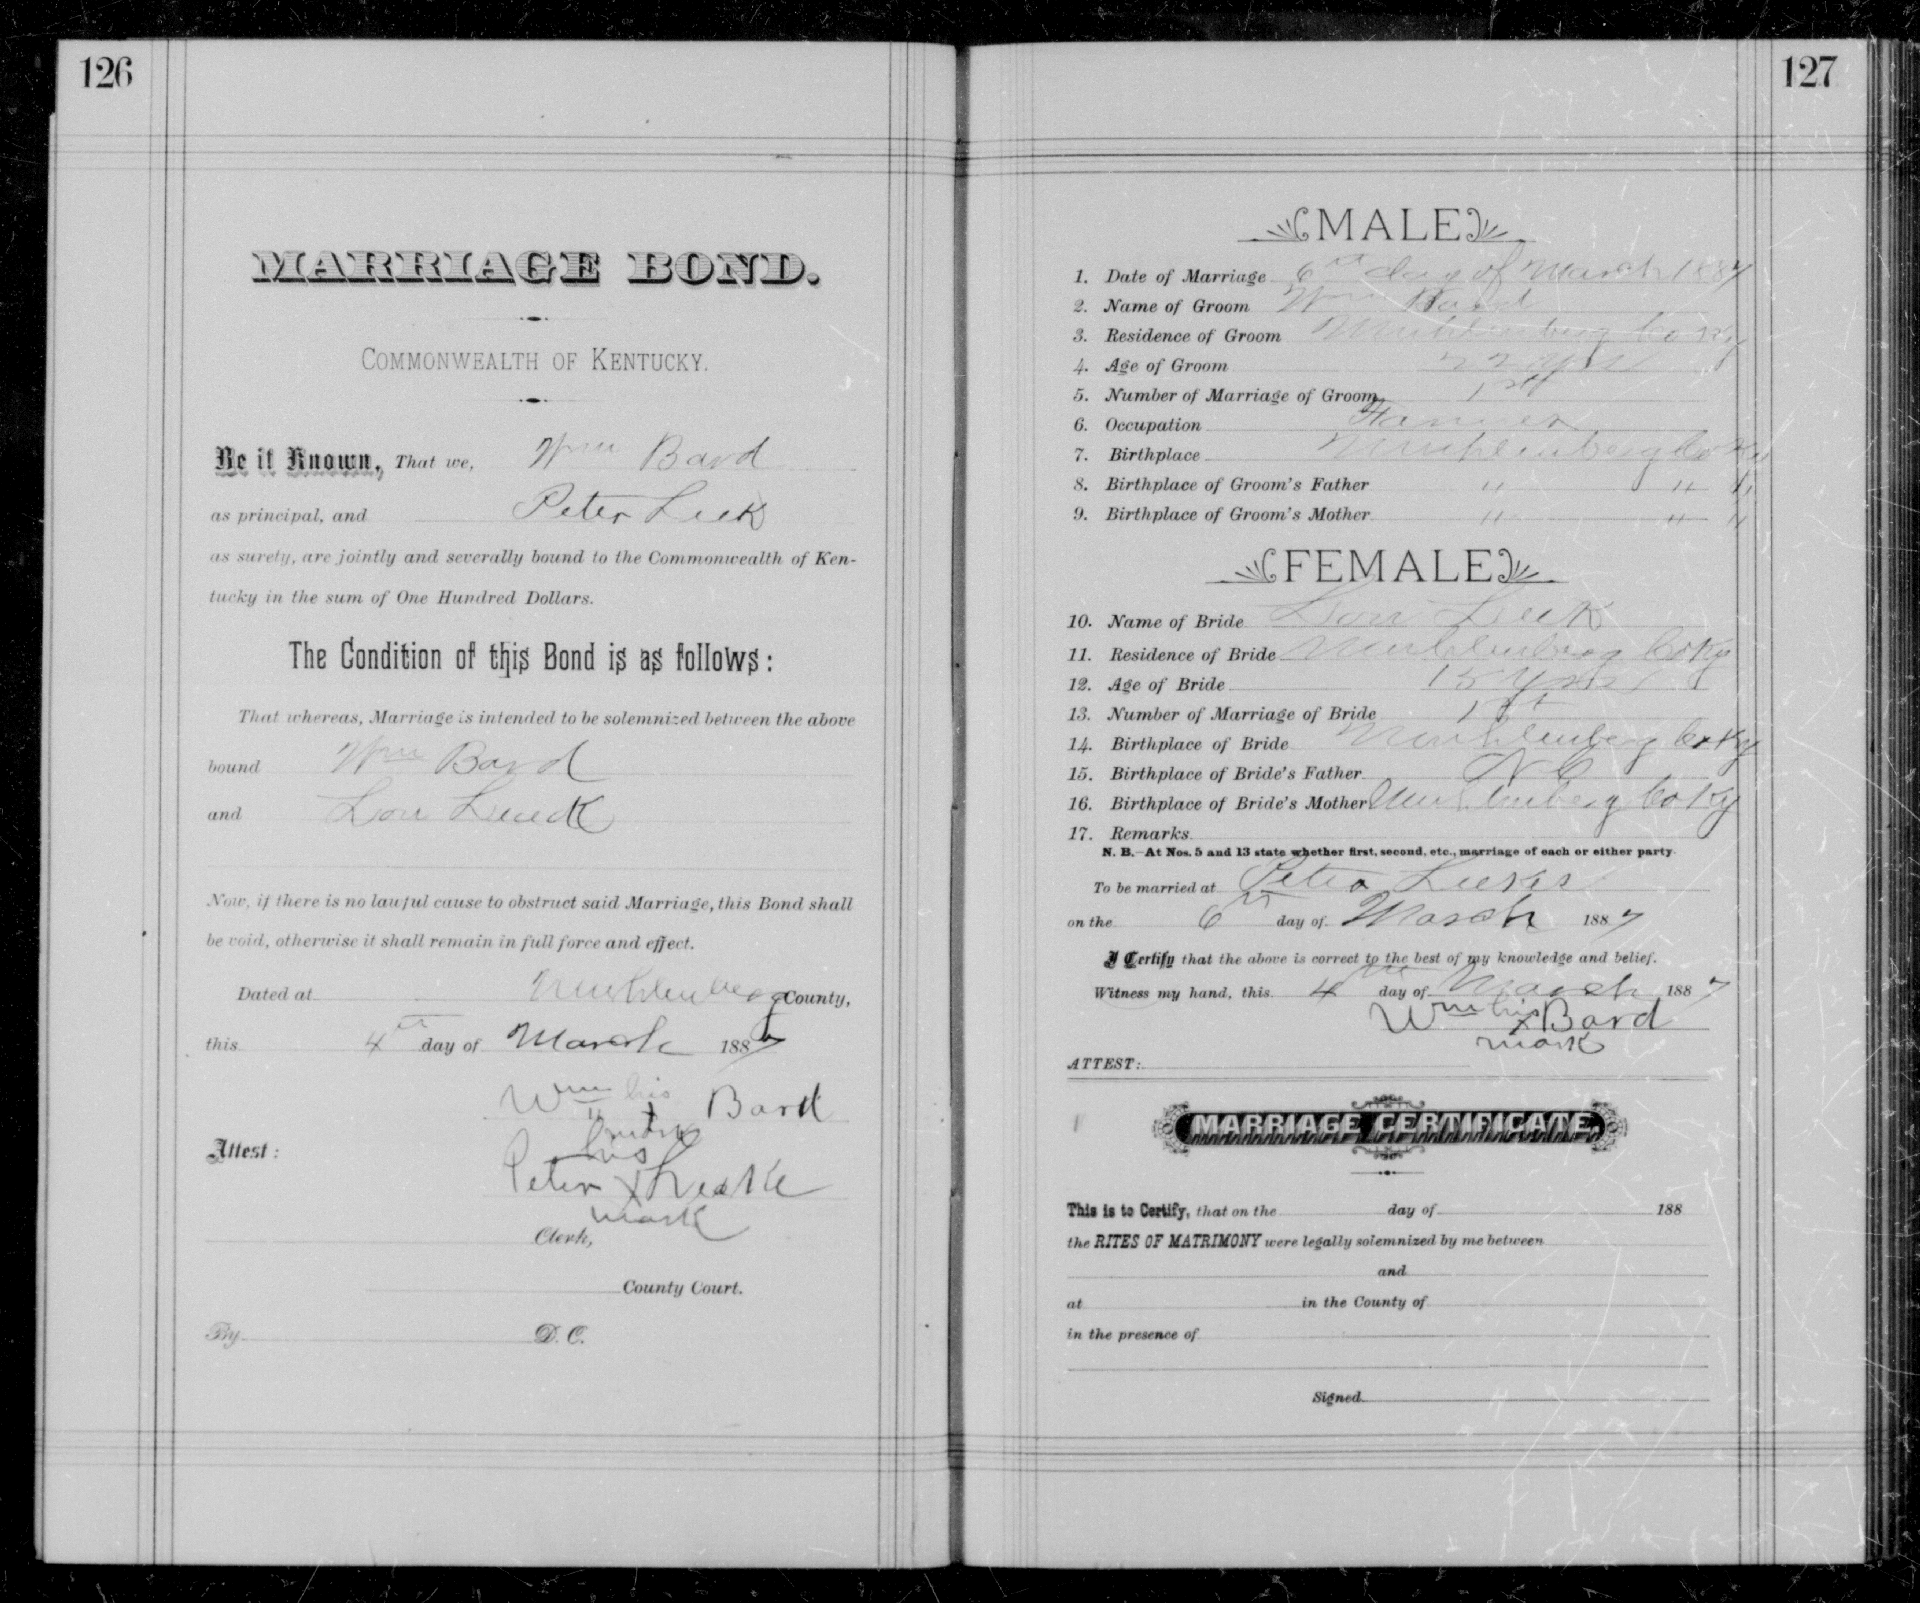 126
MARRIAGE BOND.
COMMONWEALTH OF KENTUCKY.
Be it Known, That we, Wm Bard
as principal, and Peter Leek
as surety, are jointly and severally bound to the Commonwealth of Ken-
tucky in the sum of One Hundred Dollars.
The Condition of this Bond is as follows:
That whereas, Marriage is intended to be solemnized between the above
bound Wm Bard
and Lou
Now, if there is no lawful cause to obstruct said Marriage, this Bond shall
be void, otherwise it shall remain in full force and effect.
Dated at Muhlenberg County,
this 4th day of March 1887
Wm his Bard
x
mark
Attest:
his
Peter x
mark
Clerk,
County Court.
By D. C.
127
MALE
1. Date of Marriage 6th day of March 1887
2. Name of Groom Wm Bard
3. Residence of Groom Muhlenberg Co Ky
4. Age of Groom 22 yrs
5. Number of Marriage of Groom 1st
6. Occupation Farmer
7. Birthplace Muhlenberg Co Ky
8. Birthplace of Groom's Father " " "
9. Birthplace of Groom's Mother " " "
FEMALE
10. Name of Bride Lou Leek
11. Residence of Bride Muhlenberg Co Ky
12. Age of Bride 15 yrs
13. Number of Marriage of Bride 1st
14. Birthplace of Bride Muhlenberg Co Ky
15. Birthplace of Bride's Father N C
16. Birthplace of Bride's Mother Muhlenberg Co Ky
17. Remarks
N. B.—At Nos. 5 and 13 state whether first, second, etc., marriage of each or either party.
To be married at Peter Leeks
on the 6th day of March 1887
I Certify that the above is correct to the best of my knowledge and belief.
Witness my hand, this 4th day of March 1887
Wm his x Bard
mark
ATTEST:
MARRIAGE CERTIFICATE.
This is to Certify, that on the day of 188
the RITES OF MATRIMONY were legally solemnized by me between
and
at in the County of
in the presence of
Signed